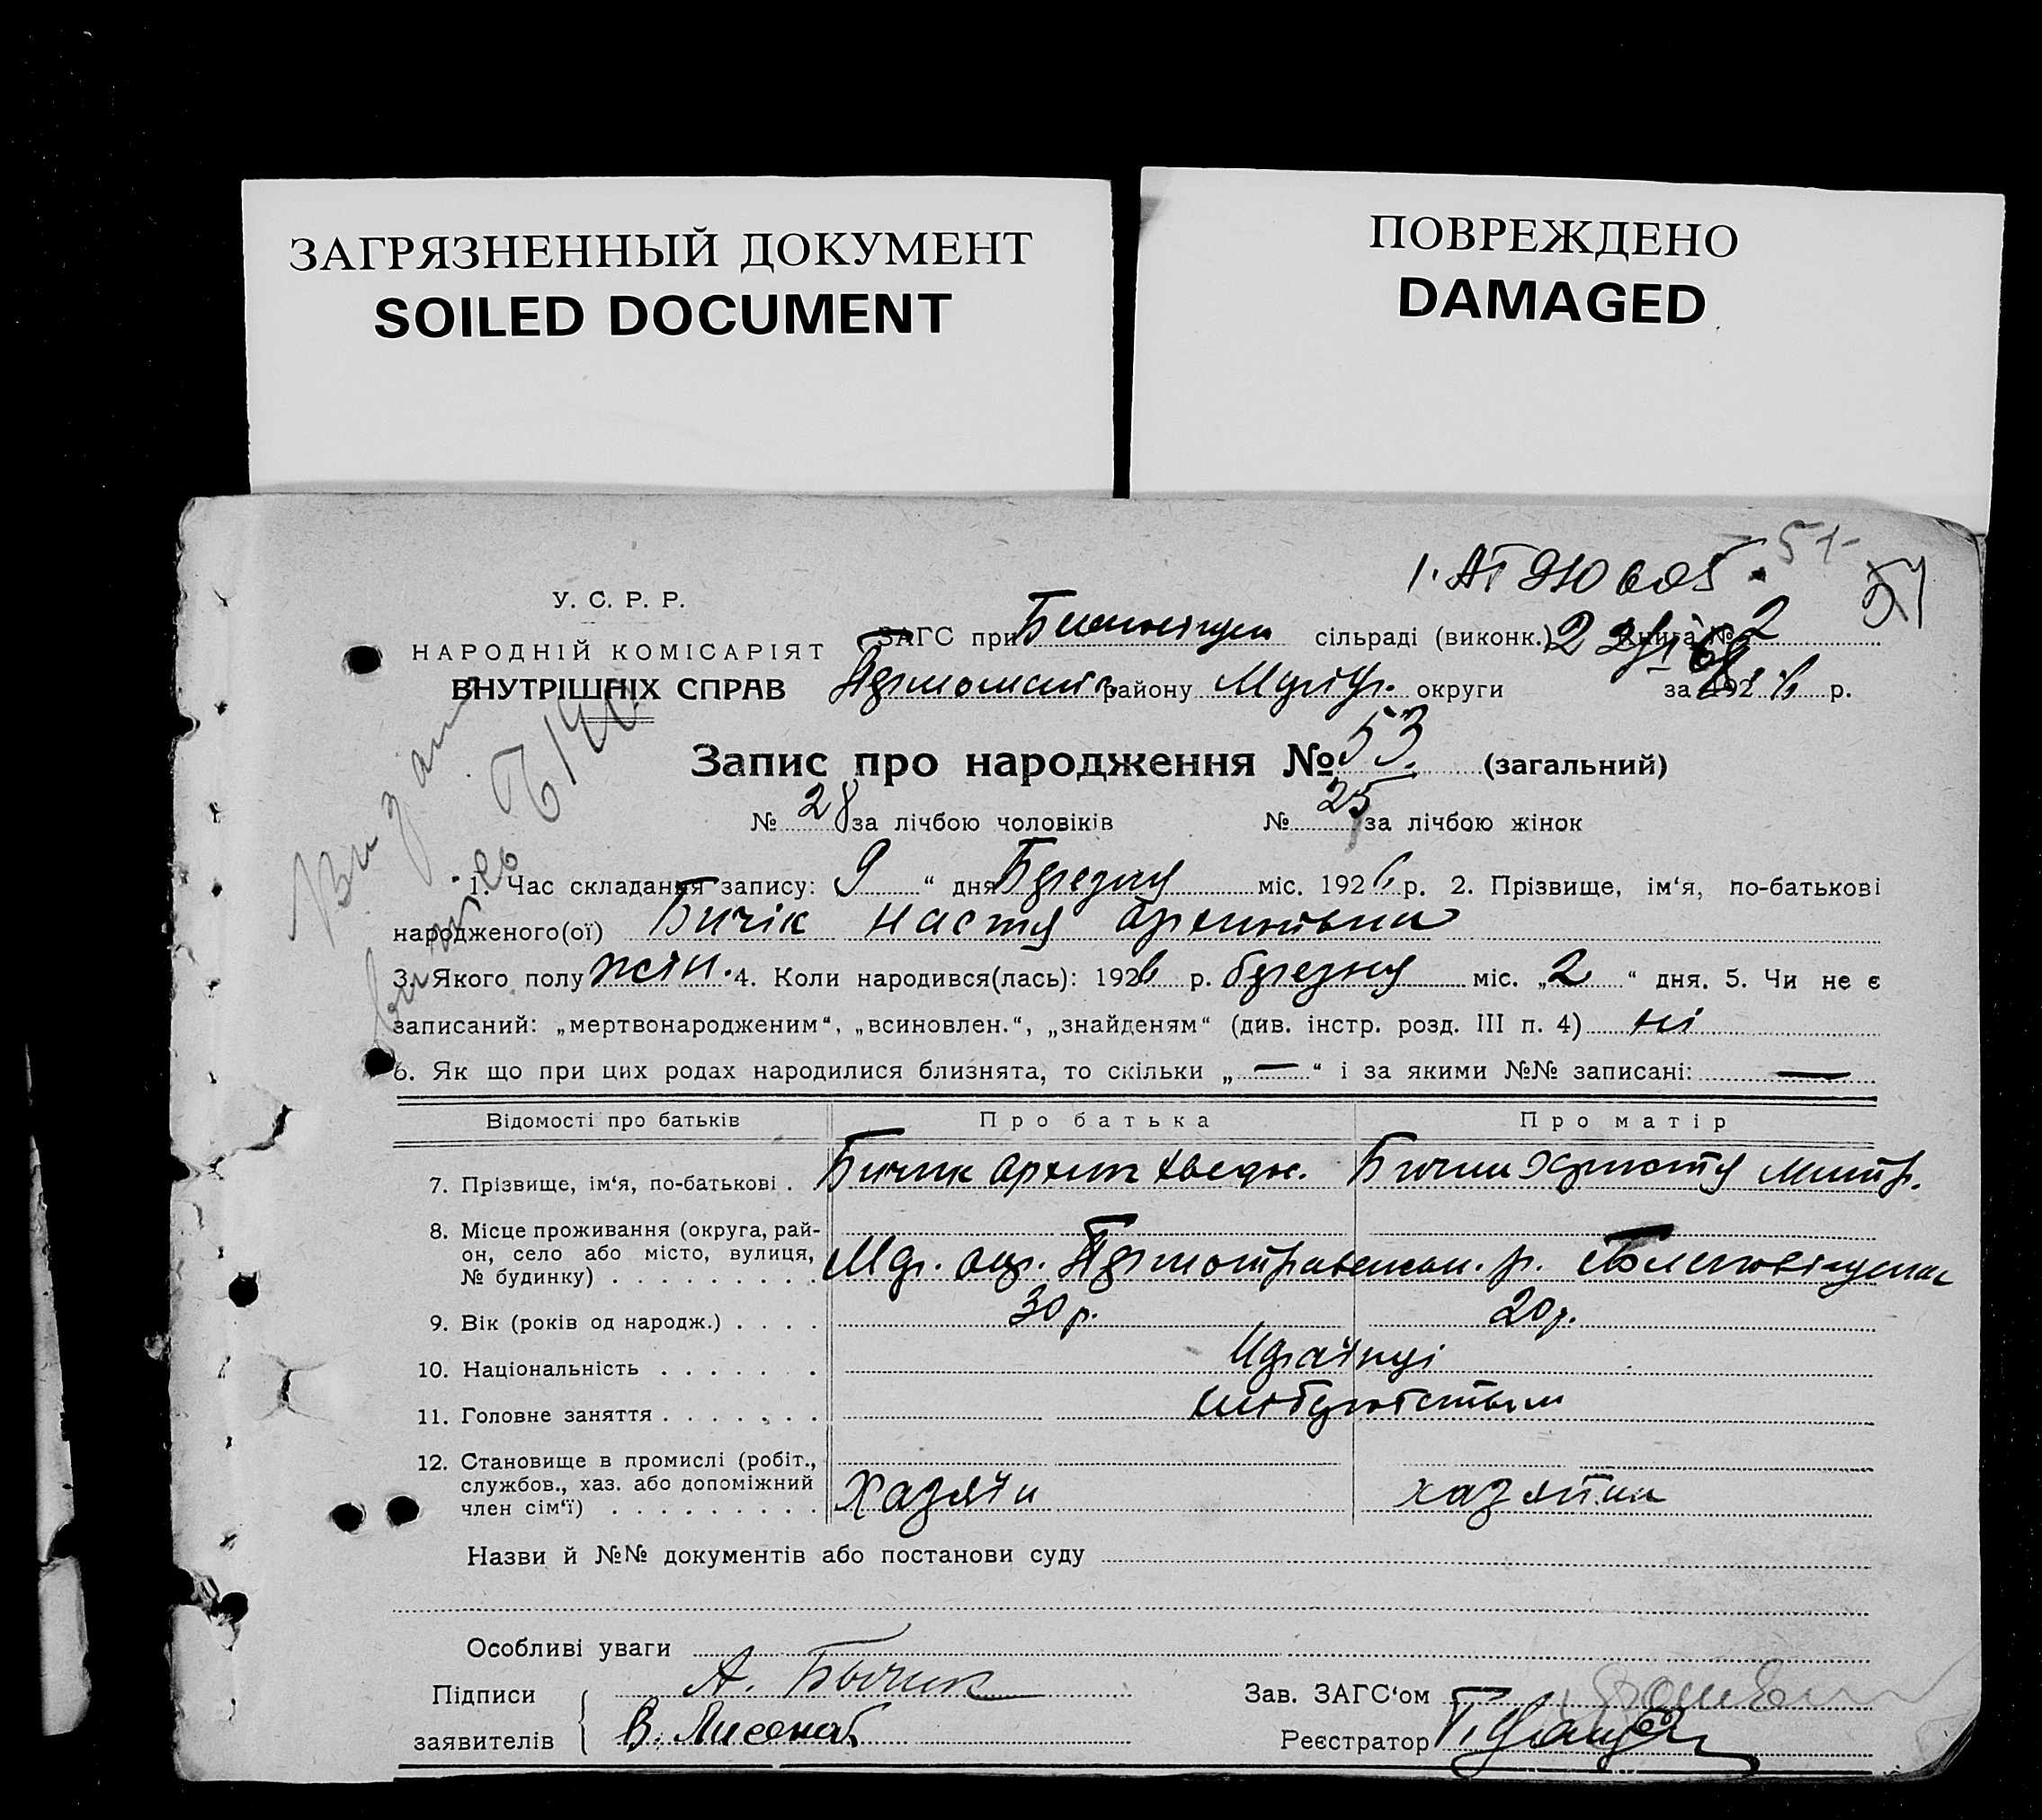 ЗАГРЯЗНЕННЫЙ ДОКУМЕНТ
SOILED DOCUMENT
ПОВРЕЖДЕНО
DAMAGED
51
У. С. Р. Р.
НАРОДНІЙ КОМІСАРІЯТ
ВНУТРІШНІХ СПРАВ
ЗАГС при сільраді (виконк.) Книга № 2
району округи за 1926 р.
Запис про народження № 53 (загальний)
№ 28 за лічбою чоловіків № 25 за лічбою жінок
1. Час складання запису: 9 “ дня Березня міс. 1926 р. 2. Прізвище, ім‘я, по-батькові
народженого(ої) Бичік Настя Артемівна
3. Якого полу жін. 4. Коли народився(лась): 1926 р. березня міс. „ 2 “ дня. 5. Чи не є
записаний: „мертвонародженим“, „всиновлен.“, „знайденям“ (див. інстр. розд. III п. 4) ні
6. Як що при цих родах народилися близнята, то скільки „ — “ і за якими №№ записані: —
Відомості про батьків Про батька Про матір
7. Прізвище, ім‘я, по-батькові . Бичик Артем Бичик Христя Митр.
8. Місце проживання (округа, рай-
он, село або місто, вулиця,
№ будинку) . . . . . . . . .
9. Вік (років од народж.) . . . . 30 р. 20 р.
10. Національність . . . . . . . Українці
11. Головне заняття . . . . . . . хліборобством
12. Становище в промислі (робіт.,
службов., хаз. або допоміжний
член сім‘ї) . . . . . . . . . Хазяїн хазяйка
Назви й №№ документів або постанови суду
Особливі уваги
Підписи А. Бычик Зав. ЗАГС‘ом
заявителів В. Реєстратор